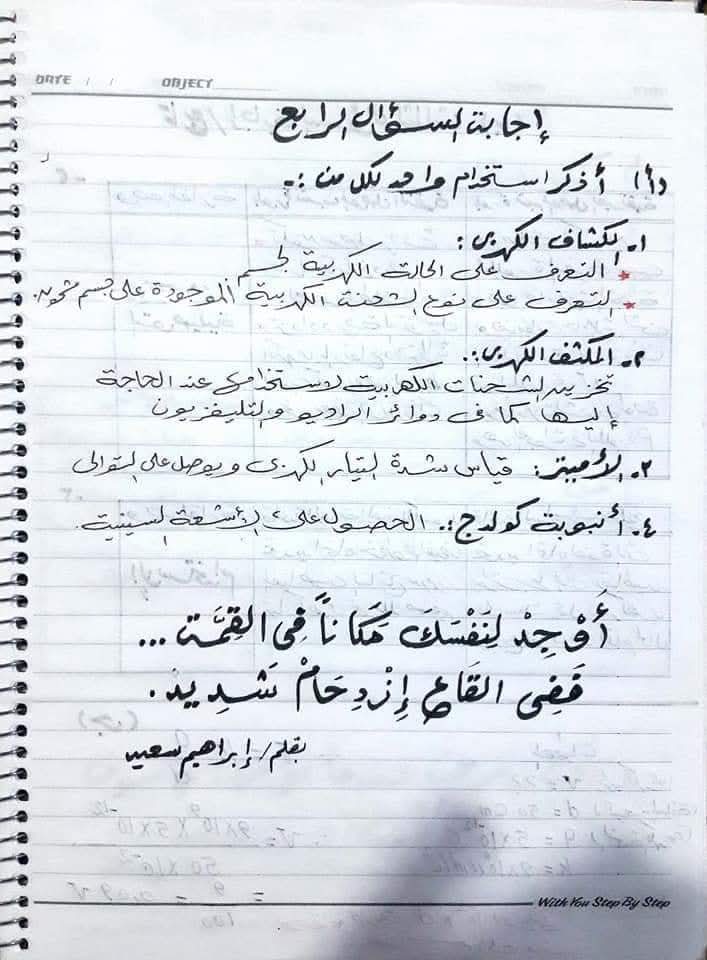 DATE / / OBJECT
إجابة السؤال الرابع
(أ) أذكر استخدام واحد لكل من :-
١- الكشاف الكهربى :
* التعرف على الحالة الكهربية لجسم
* التعرف على نوع الشحنة الكهربية الموجودة على جسم مشحون.
٢- المكثف الكهربى :.
تخزين الشحنات الكهربية لاستخدامها عند الحاجة
إليها كما فى دوائر الراديو والتليفزيون
٣- الأميتر : قياس شدة التيار الكهربى ويوصل على التوالى
٤- أنبوبة كولدج :. الحصول على الأشعة السينية.
أَوْجِدْ لِنَفْسَكَ مَكَاناً فِى القِمَّة ...
فَفِى القَاعِ إِزْدِحَامْ شَدِيد .
بقلم / إبراهيم سعيد
With You Step By Step